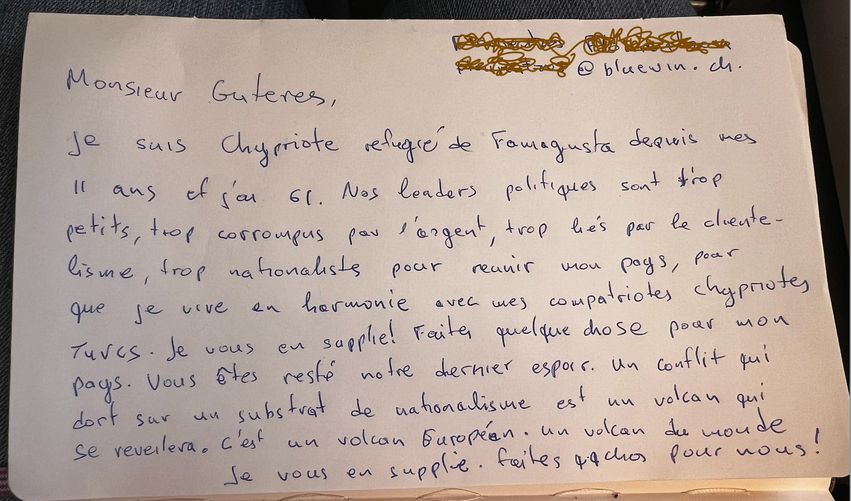 @ bluewin.ch.
Monsieur Guteres,
Je suis Chypriote refugié de Famagusta depuis mes
11 ans et j'ai 61. Nos leaders politiques sont trop
petits, trop corrompus par l'argent, trop liés par le cliente-
lisme, trop nationalists pour reunir mon pays, pour
que je vive en harmonie avec mes compatriotes chypriotes
Turcs. Je vous en supplie! Faites quelque chose pour mon
pays. Vous êtes resté notre dernier espoir. Un conflit qui
dort sur un substrat de nationalisme est un volcan qui
se reveillera. C'est un volcan Européen. Un volcan du monde
Je vous en supplie. Faites pour nous!